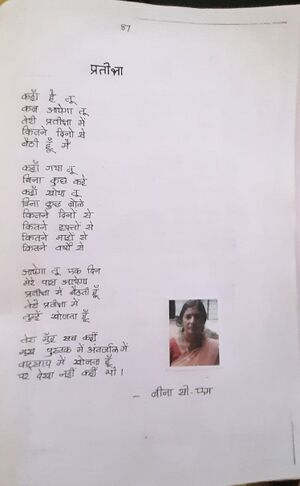 87
प्रतीक्षा
कहाँ है तू
कब आयेगा तू
तेरी प्रतीक्षा में
कितने दिनों से
बैठी हूँ मैं
कहाँ गया तू
बिना कुछ कहे
कहाँ खोया तू
बिना कुछ बोले
कितने दिनों से
कितने हफ्तों से
कितने माहों से
कितने वर्षों से
आयेगा तू एक दिन
मेरे पास आयेगा
प्रतीक्षा में बैठती हूँ
तेरी प्रतीक्षा में
तुम्हें खोजता हूँ
तेरा मुँह सब कहीं
मुख पुस्तक में अंतर्जाल में
वाट्साप में खोजता हूँ
पर देखा नहीं कहीं भी।
- नीना सी. एम